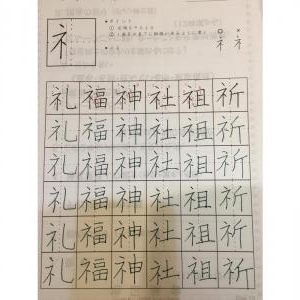 ネ
ポイント
礼福神社祖祈
礼福神社祖祈
礼福神社祖祈
礼福神社祖祈
礼福神社祖祈
礼福神社祖祈